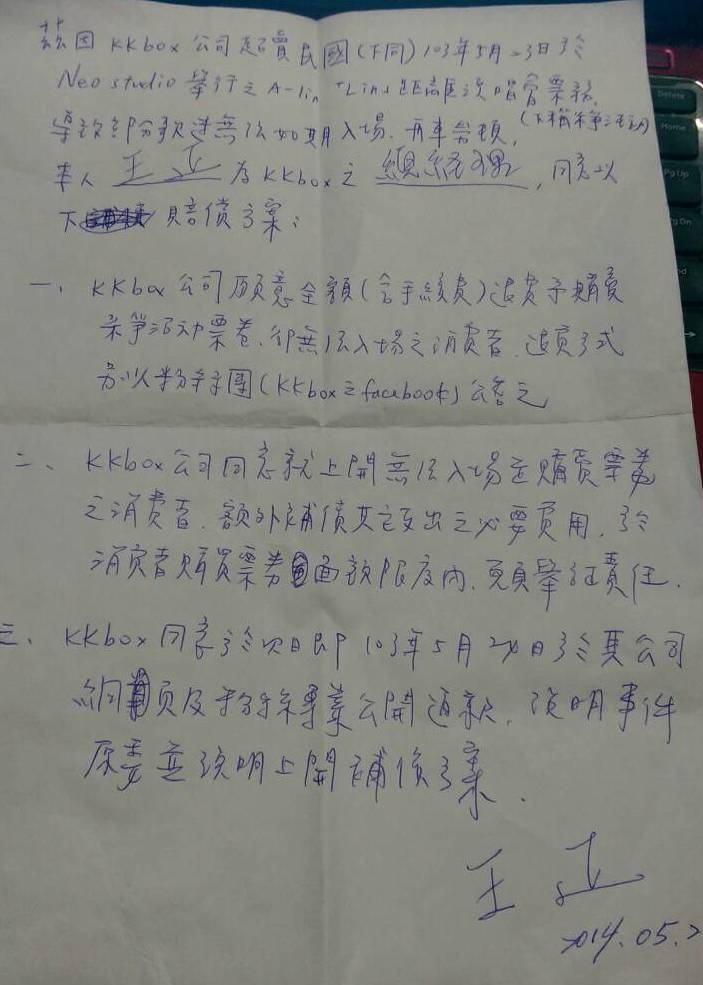 茲因 KKbox 公司超賣民國(下同)103年5月23日於
Neo studio 舉行之 A-Lin "Lin距離演唱會票務,
導致部份歌迷無法如期入場,舟車勞頓,(下稱系爭活動)
本人 王正 為 KKbox 之 總經理,同意以
下 賠償方案:
一、KKbox 公司願意全額(含手續費)退費予購買
系爭活動票卷,卻無法入場之消費者,退費方式
另以粉絲團(KKbox之facebook)公告之
二、KKbox 公司同意就上開無法入場且購買票券
之消費者,額外補償其支出之必要費用,於
消費者購買票券面額限度內,免負舉証責任.
三、KKbox 同意於次日即 103年5月24日於其公司
網頁及粉絲專業公開道歉,說明事件
原委並說明上開補償方案.
王正
2014.05.2